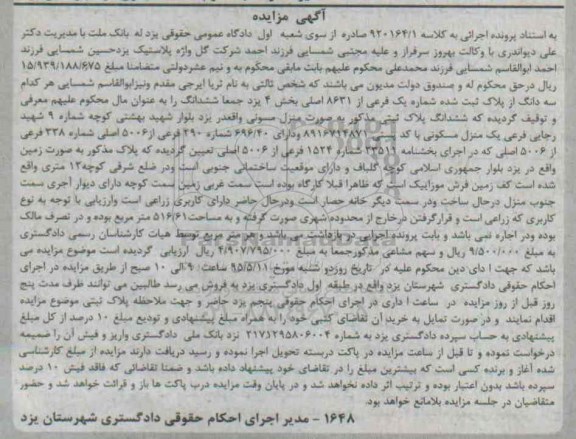 آگهی مزایده
به استناد پرونده اجرائی به کلاسه ۹۲۰۱۶۴/۱ صادره از سوی شعبه اول دادگاه عمومی حقوقی یزد له بانک ملت با مدیریت دکتر
علی دیواندری با وکالت بهروز سرفراز و علیه مجتبی شمسایی فرزند احمد شرکت گل واژه پلاستیک یزدحسین شمسایی فرزند
احمد ابوالقاسم شمسایی فرزند محمدعلی محکوم علیهم بابت مابقی محکوم به و نیم عشردولتی متضامنا مبلغ ۱۵/۹۳۹/۱۸۸/۶۷۵
ریال درحق محکوم له و صندوق دولت مدیون می باشند که شخص ثالثی به نام ثریا ایرجی مقدم ونیزابوالقاسم شمسایی هر کدام
سه دانگ از پلاک ثبت شده شماره یک فرعی از ۸۶۳۱ اصلی بخش ۴ یزد جمعا ششدانگ را به عنوان مال محکوم علیهم معرفی
و توقیف گردیده که ششدانگ پلاک ثبتی مذکور به صورت منزل مسونی واقعدر یزد بلوار شهید بهشتی کوچه شماره ۹ شهید
رجایی فرعی یک منزل مسکونی با کد پستی ۸۹۱۶۷۱۴۸۷۱ ودارای ۶۹۶/۴۰ شماره ۲۹۰ فرعی از۵۰۰۶ اصلی شماره ۳۳۸ فرعی
از ۵۰۰۶ اصلی که در اجرای بخشنامه ۳۳۵۱۱ شماره ۱۵۲۴ فرعی از ۵۰۰۶ اصلی تعیین گردیده که پلاک مذکور به صورت زمین
واقع در یزد بلوار جمهوری اسلامی کوچه گلباف و دارای موقعیت ساختمانی جنوبی است ودر ضلع شرقی کوچه۱۲ متری واقع
شده است کف زمین فرش موزاییک است که ظاهرا قبلا کارگاه بوده است سمت غربی زمین سمت کوچه دارای دیوار آجری سمت
جنوب منزل درحال ساخت ودر سمت دیگر خانه حصار است ودرحال حاضر دارای کاربری زراعی است وارزیابی با توجه به نوع
کاربری که زراعی است و قرارگرفتن درخارج از محدوده شهری صورت گرفته و به مساحت۵۱۶/۶۱ متر مربع بوده و در تصرف مالک
بوده ودر اجاره نمی باشد و بابت پرونده اجرایی در بازداشت می باشد و هر متر مربع توسط هیات کارشناسان رسمی دادگستری
به مبلغ ۹/۵۰۰/۰۰۰ ریال و سهم مشاعی مذکورجمعا به مبلغ ۴/۹۰۷/۷۹۵/۰۰۰ ریال ارزیابی گردیده است موضوع مزایده می
باشد که جهت ا دای دین محکوم علیه در تاریخ روزدو شنبه مورخ ۹۵/۵/۱۱ ساعت: ۹ الی ۱۰ صبح از طریق مزایده در اجرای
احکام حقوقی دادگستری شهرستان یزد واقع در طبقه اول دادگستری یزد به فروش می رسد طالبین می توانند ظرف مدت پنج
روز قبل از روز مزایده در ساعت ا داری در اجرای احکام حقوقی پنجم یزد حاضر و جهت ملاحظه پلاک ثبتی موضوع مزایده
اقدام نمایند و در صورت تمایل به خرید آن تقاضای کتبی خود را به همراه مبلغ پیشنهادی و تودیع مبلغ ۱۰ درصد از کل مبلغ
پیشنهادی به حساب سپرده دادگستری یزد به شماره ۲۱۷۱۲۹۵۸۰۶۰۰۴ نزد بانک ملی دادگستری واریز و فیش آن را ضمیمه
درخواست نموده و تا قبل از ساعت مزایده در پاکت دربسته تحویل اجرا نموده و رسید دریافت دارند مزایده از مبلغ کارشناسی
شده آغاز و برنده کسی است که بیشترین مبلغ را در تقاضای خود پیشنهاد داده باشد و ضمنا تقاضائی که فاقد فیش ۱۰ درصد
سپرده باشد بدون اعتبار بوده و ترتیب اثر داده نخواهد شد و در پایان وقت مزایده درب پاکت ها باز و قرائت خواهد شد و حضور
متقاضیان در جلسه مزایده بلامانع خواهد بود.
۱۶۴۸ - مدیر اجرای احکام حقوقی دادگستری شهرستان یزد